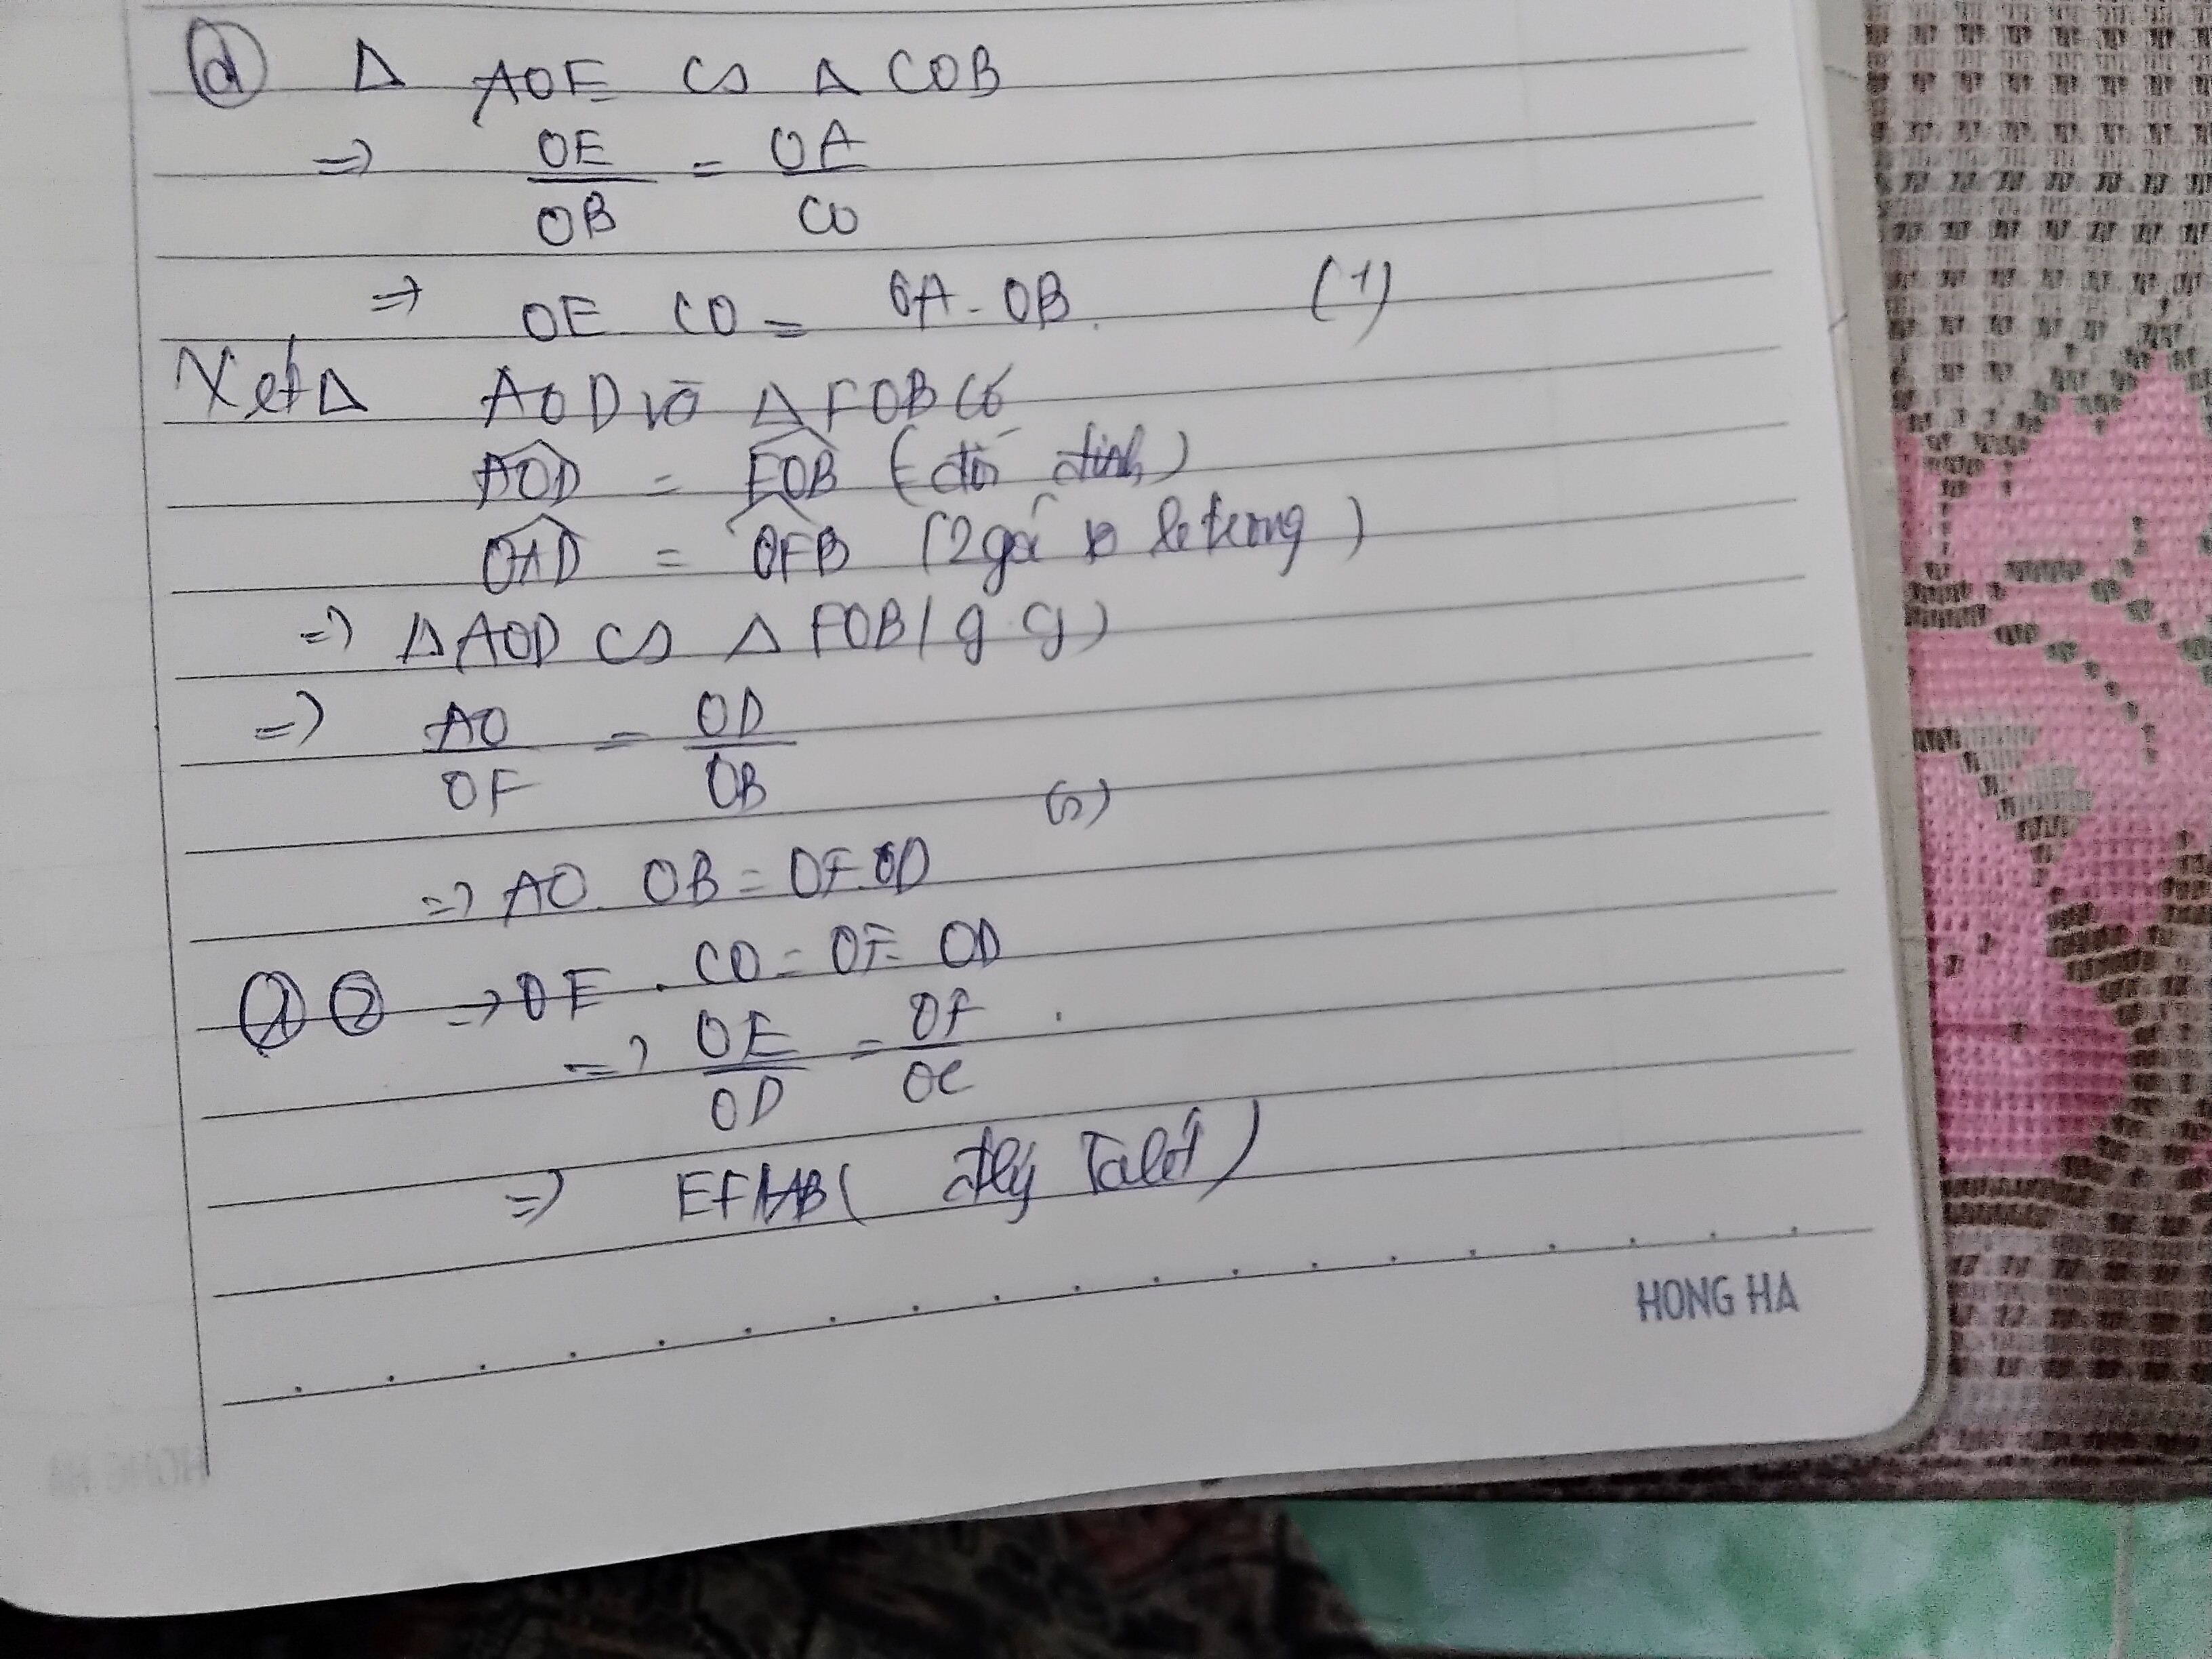 d) Δ AOE ∽ Δ COB
=> OE/OB = OA/CO
=> OE. CO = OA. OB. (1)
Xét Δ AOD và Δ FOB có
AOD = FOB (đối đỉnh)
OAD = OFB (2 góc so le trong)
=> Δ AOD ∽ Δ FOB (g.g)
=> AO/OF = OD/OB
(2)
=> AO. OB = OF.OD
① ② => OE . CO = OF. OD
=> OE/OD = OF/OC .
=> EF//AB ( đlý Talét )
HONG HA